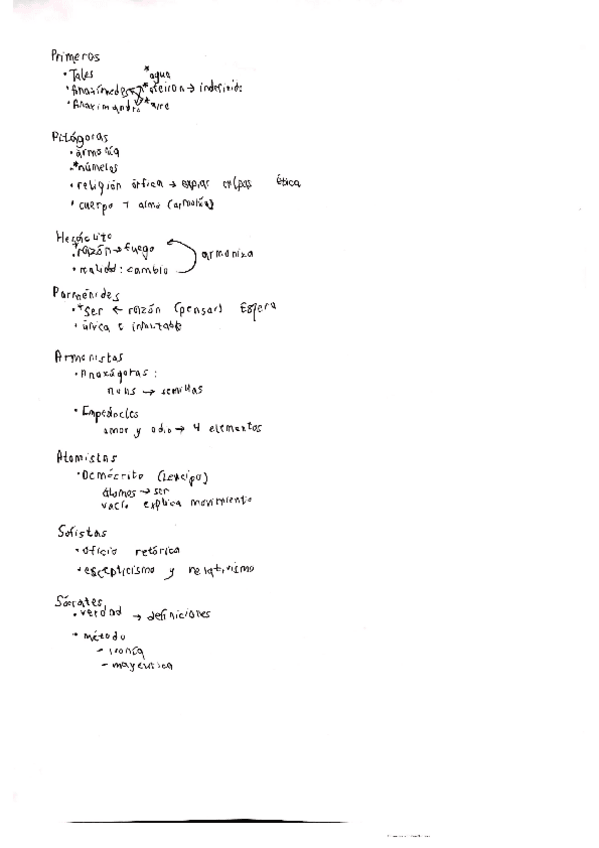 Primeros
• Tales * agua
• Anaxímedes * apeiron → indefinido
• Anaximandro * aire
Pitágoras
• armonía
• * números
• religión órfica → expiar culpas ética
• cuerpo y alma (armonía)
Heráclito
• * razón → fuego
armoniza
• realidad: cambio
Parménides
• * Ser ← razón (pensar) Esfera
• única e inmutable
Armonistas
• Anaxágoras:
nous → semillas
• Empédocles
amor y odio → 4 elementos
Atomistas
• Demócrito (Leucipo)
átomos → ser
vacío explica movimiento
Sofistas
• oficio retórica
• escepticismo y relativismo
Sócrates
• verdad → definiciones
• método
- ironía
- mayeutica